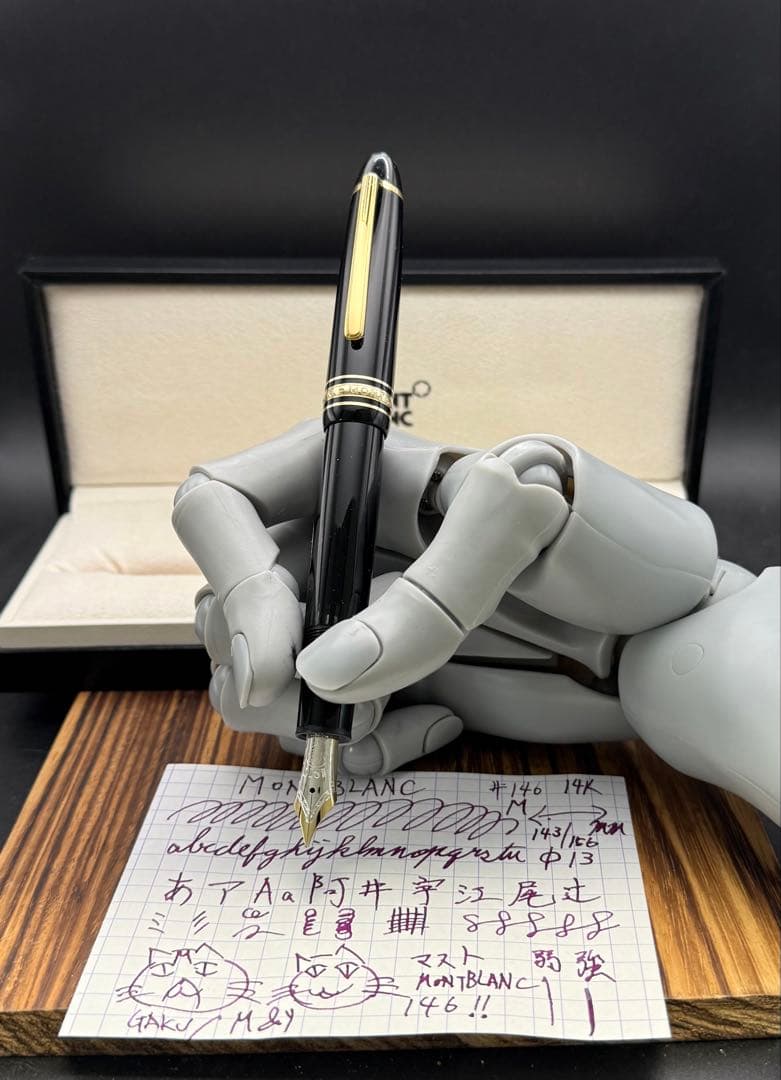 MONT
BLANC
MONTBLANC #146 14K
M
143/166 mm
abcdefghijklmnopqrstu φ13
あ ア A a 阝 可 井 宇 江 尾 辻
マスト 弱 強
MONTBLANC
146!!
GAKU / M&Y